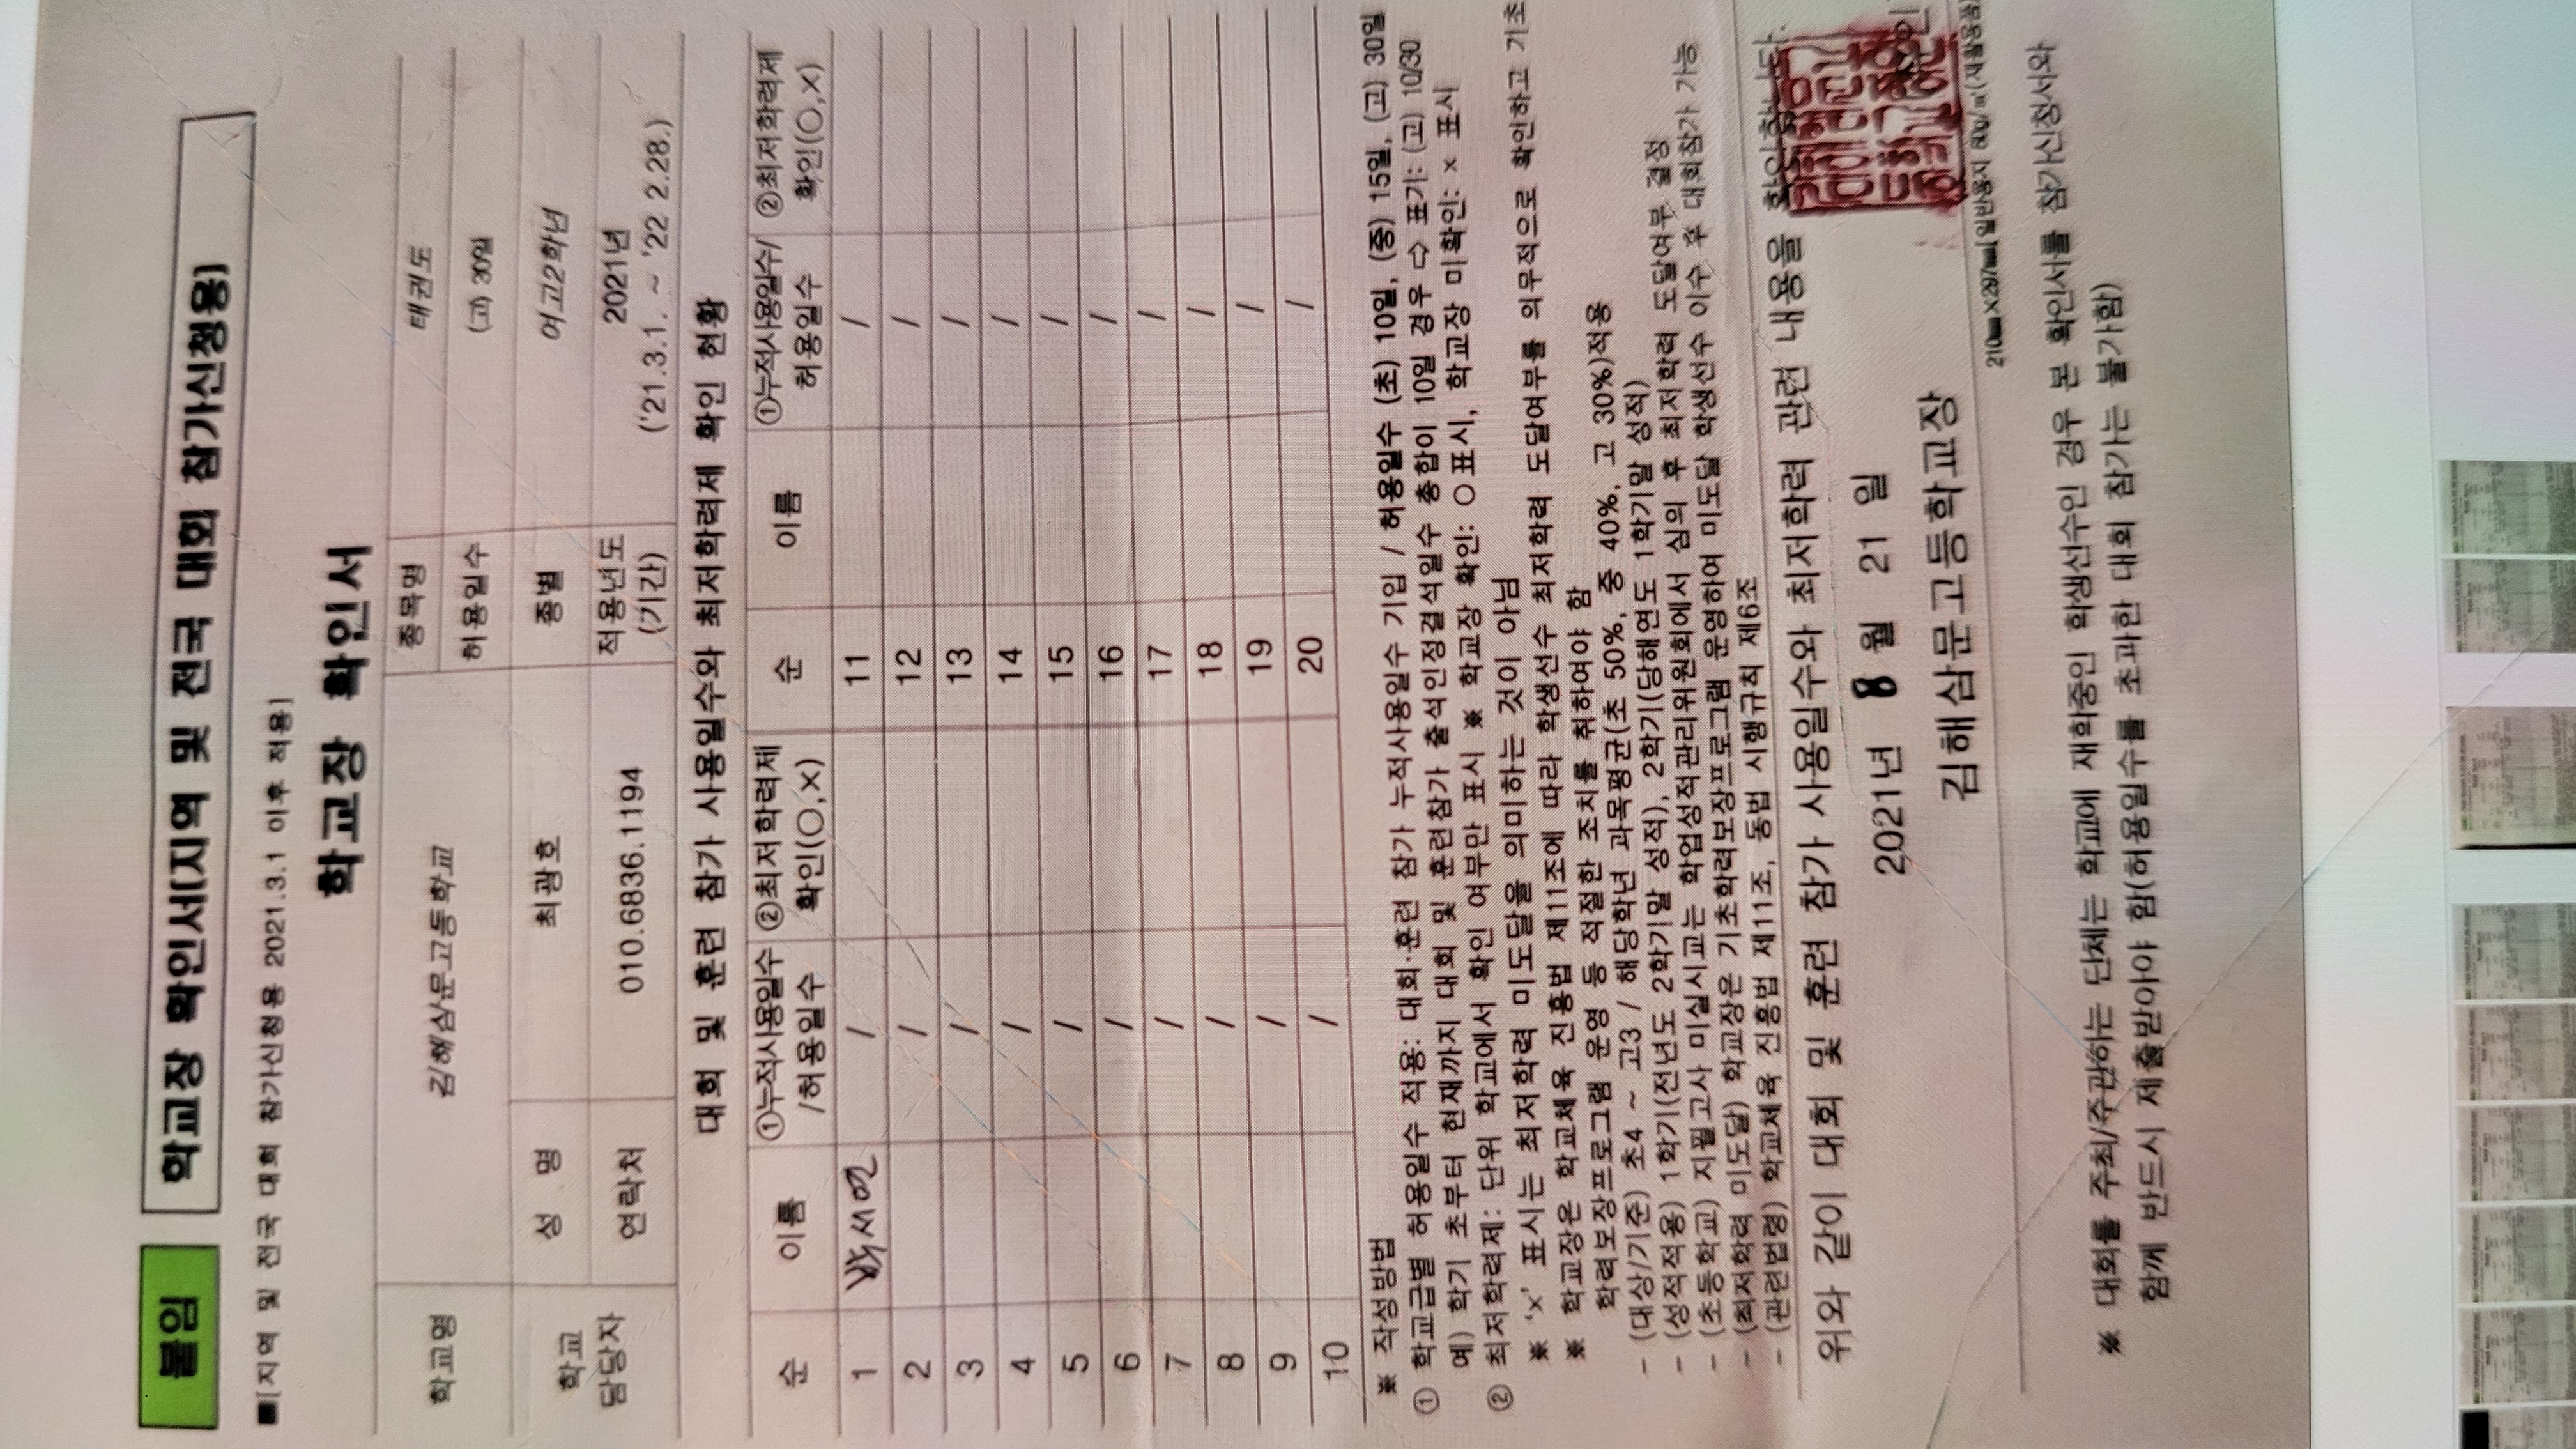 붙임
학교장 확인서(지역 및 전국 대회 참가신청용)
■[지역 및 전국 대회 참가신청용 2021.3.1 이후 적용]
학교장 확인서
학교명 김해삼문고등학교 종목명 태권도
허용일수 (고) 30일
학교 담당자 성 명 최광호 종별 여고2학년
연락처 010.6836.1194 적용년도 (기간) 2021년 ('21.3.1. ~ '22 2.28.)
대회 및 훈련 참가 사용일수와 최저학력제 확인 현황
순 이름 ①누적사용일수 /허용일수 ②최저학력제 확인(○,×) 순 이름 ①누적사용일수/ 허용일수 ②최저학력제 확인(○,×)
1 서연 / 11 /
2 / 12 /
3 / 13 /
4 / 14 /
5 / 15 /
6 / 16 /
7 / 17 /
8 / 18 /
9 / 19 /
10 / 20 /
※ 작성방법
① 학교급별 허용일수 적용: 대회·훈련 참가 누적사용일수 기입 / 허용일수 (초) 10일, (중) 15일, (고) 30일
예) 학기 초부터 현재까지 대회 및 훈련참가 출석인정결석일수 총합이 10일 경우 ⇨ 표기: (고) 10/30
② 최저학력제: 단위 학교에서 확인 여부만 표시 ※ 학교장 확인: ○표시, 학교장 미확인: × 표시
※ 'x' 표시는 최저학력 미도달을 의미하는 것이 아님
※ 학교장은 학교체육 진흥법 제11조에 따라 학생선수 최저학력 도달여부를 의무적으로 확인하고 기초
학력보장프로그램 운영 등 적절한 조치를 취하여야 함
- (대상/기준) 초4 ~ 고3 / 해당학년 과목평균(초 50%, 중 40%, 고 30%)적용
- (성적적용) 1학기(전년도 2학기말 성적), 2학기(당해연도 1학기말 성적)
- (초등학교) 지필고사 미실시교는 학업성적관리위원회에서 심의 후 최저학력 도달여부 결정
- (최저학력 미도달) 학교장은 기초학력보장프로그램 운영하여 미도달 학생선수 이수 후 대회참가 가능
- (관련법령) 학교체육 진흥법 제11조, 동법 시행규칙 제6조
위와 같이 대회 및 훈련 참가 사용일수와 최저학력 관련 내용을 확인합니다.
2021년 8 월 21 일
김해삼문고등학교장
210㎜×297㎜[일반용지 60g/㎡(재활용품)
※ 대회를 주최/주관하는 단체는 학교에 재학중인 학생선수인 경우 본 확인서를 참가신청서와
함께 반드시 제출받아야 함(허용일수를 초과한 대회 참가는 불가함)